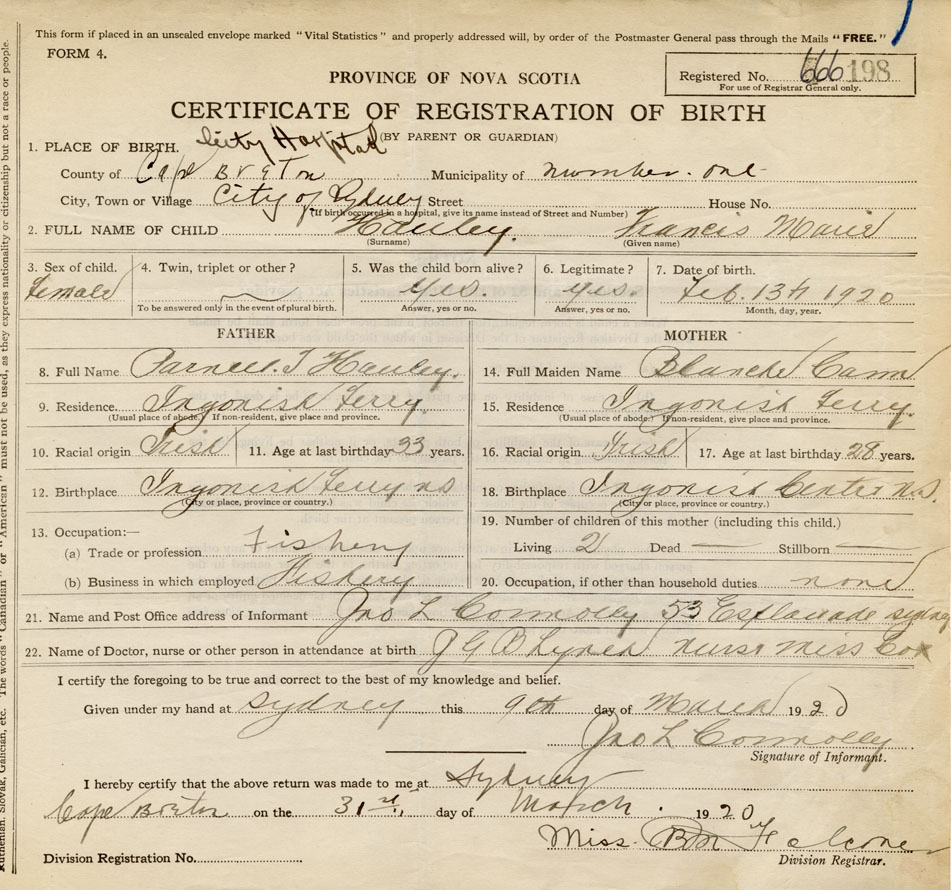 This form if placed in an unsealed envelope marked "Vital Statistics" and properly addressed will, by order of the Postmaster General pass through the Mails "FREE."
FORM 4.
PROVINCE OF NOVA SCOTIA
Registered No. 666 198
For use of Registrar General only.
CERTIFICATE OF REGISTRATION OF BIRTH
(BY PARENT OR GUARDIAN)
1. PLACE OF BIRTH. City Hospital
County of Cape Breton Municipality of number one
City, Town or Village City of Sydney Street House No.
(If birth occurred in a hospital, give its name instead of Street and Number)
2. FULL NAME OF CHILD Hauley. Francis Marie
(Surname) (Given name)
3. Sex of child. 4. Twin, triplet or other? 5. Was the child born alive? 6. Legitimate? 7. Date of birth.
Female yes. yes. Feb. 13th 1920
To be answered only in the event of plural birth. Answer, yes or no. Answer, yes or no. Month, day, year.
FATHER MOTHER
8. Full Name Parnell. J Hauley. 14. Full Maiden Name Blanche Cann
9. Residence. Ingonish Ferry. 15. Residence Ingonish Ferry.
(Usual place of abode.) If non-resident, give place and province. (Usual place of abode.) If non-resident, give place and province.
10. Racial origin Irish 11. Age at last birthday 33 years. 16. Racial origin Irish 17. Age at last birthday 28 years.
12. Birthplace Ingonish Ferry ns 18. Birthplace Ingonish Center N.S.
(City or place, province or country.) (City or place, province or country.)
13. Occupation:— 19. Number of children of this mother (including this child.)
(a) Trade or profession Fishery Living 2 Dead — Stillborn —
(b) Business in which employed Fishery 20. Occupation, if other than household duties none
21. Name and Post Office address of Informant Jno L Connolly 53 Esplanade Sydney
22. Name of Doctor, nurse or other person in attendance at birth J G B Lynch nurse Miss Cox
I certify the foregoing to be true and correct to the best of my knowledge and belief.
Given under my hand at Sydney this 9th day of March 1920
Jno L Connolly
Signature of Informant.
I hereby certify that the above return was made to me at Sydney
Cape Breton on the 31st. day of March. 1920
Miss. Falconer
Division Registration No. Division Registrar.
Ruthenian, Slovak, Galician, etc. The words "Canadian" or "American" must not be used, as they express nationality or citizenship but not a race or people.